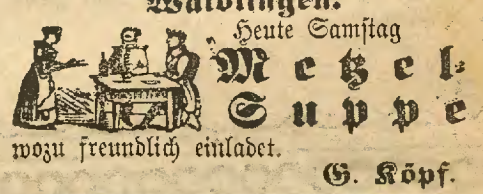 Waiblingen.
Heute Samstag
Metzel-
Suppe
wozu freundlich einladet.
G. Köpf.